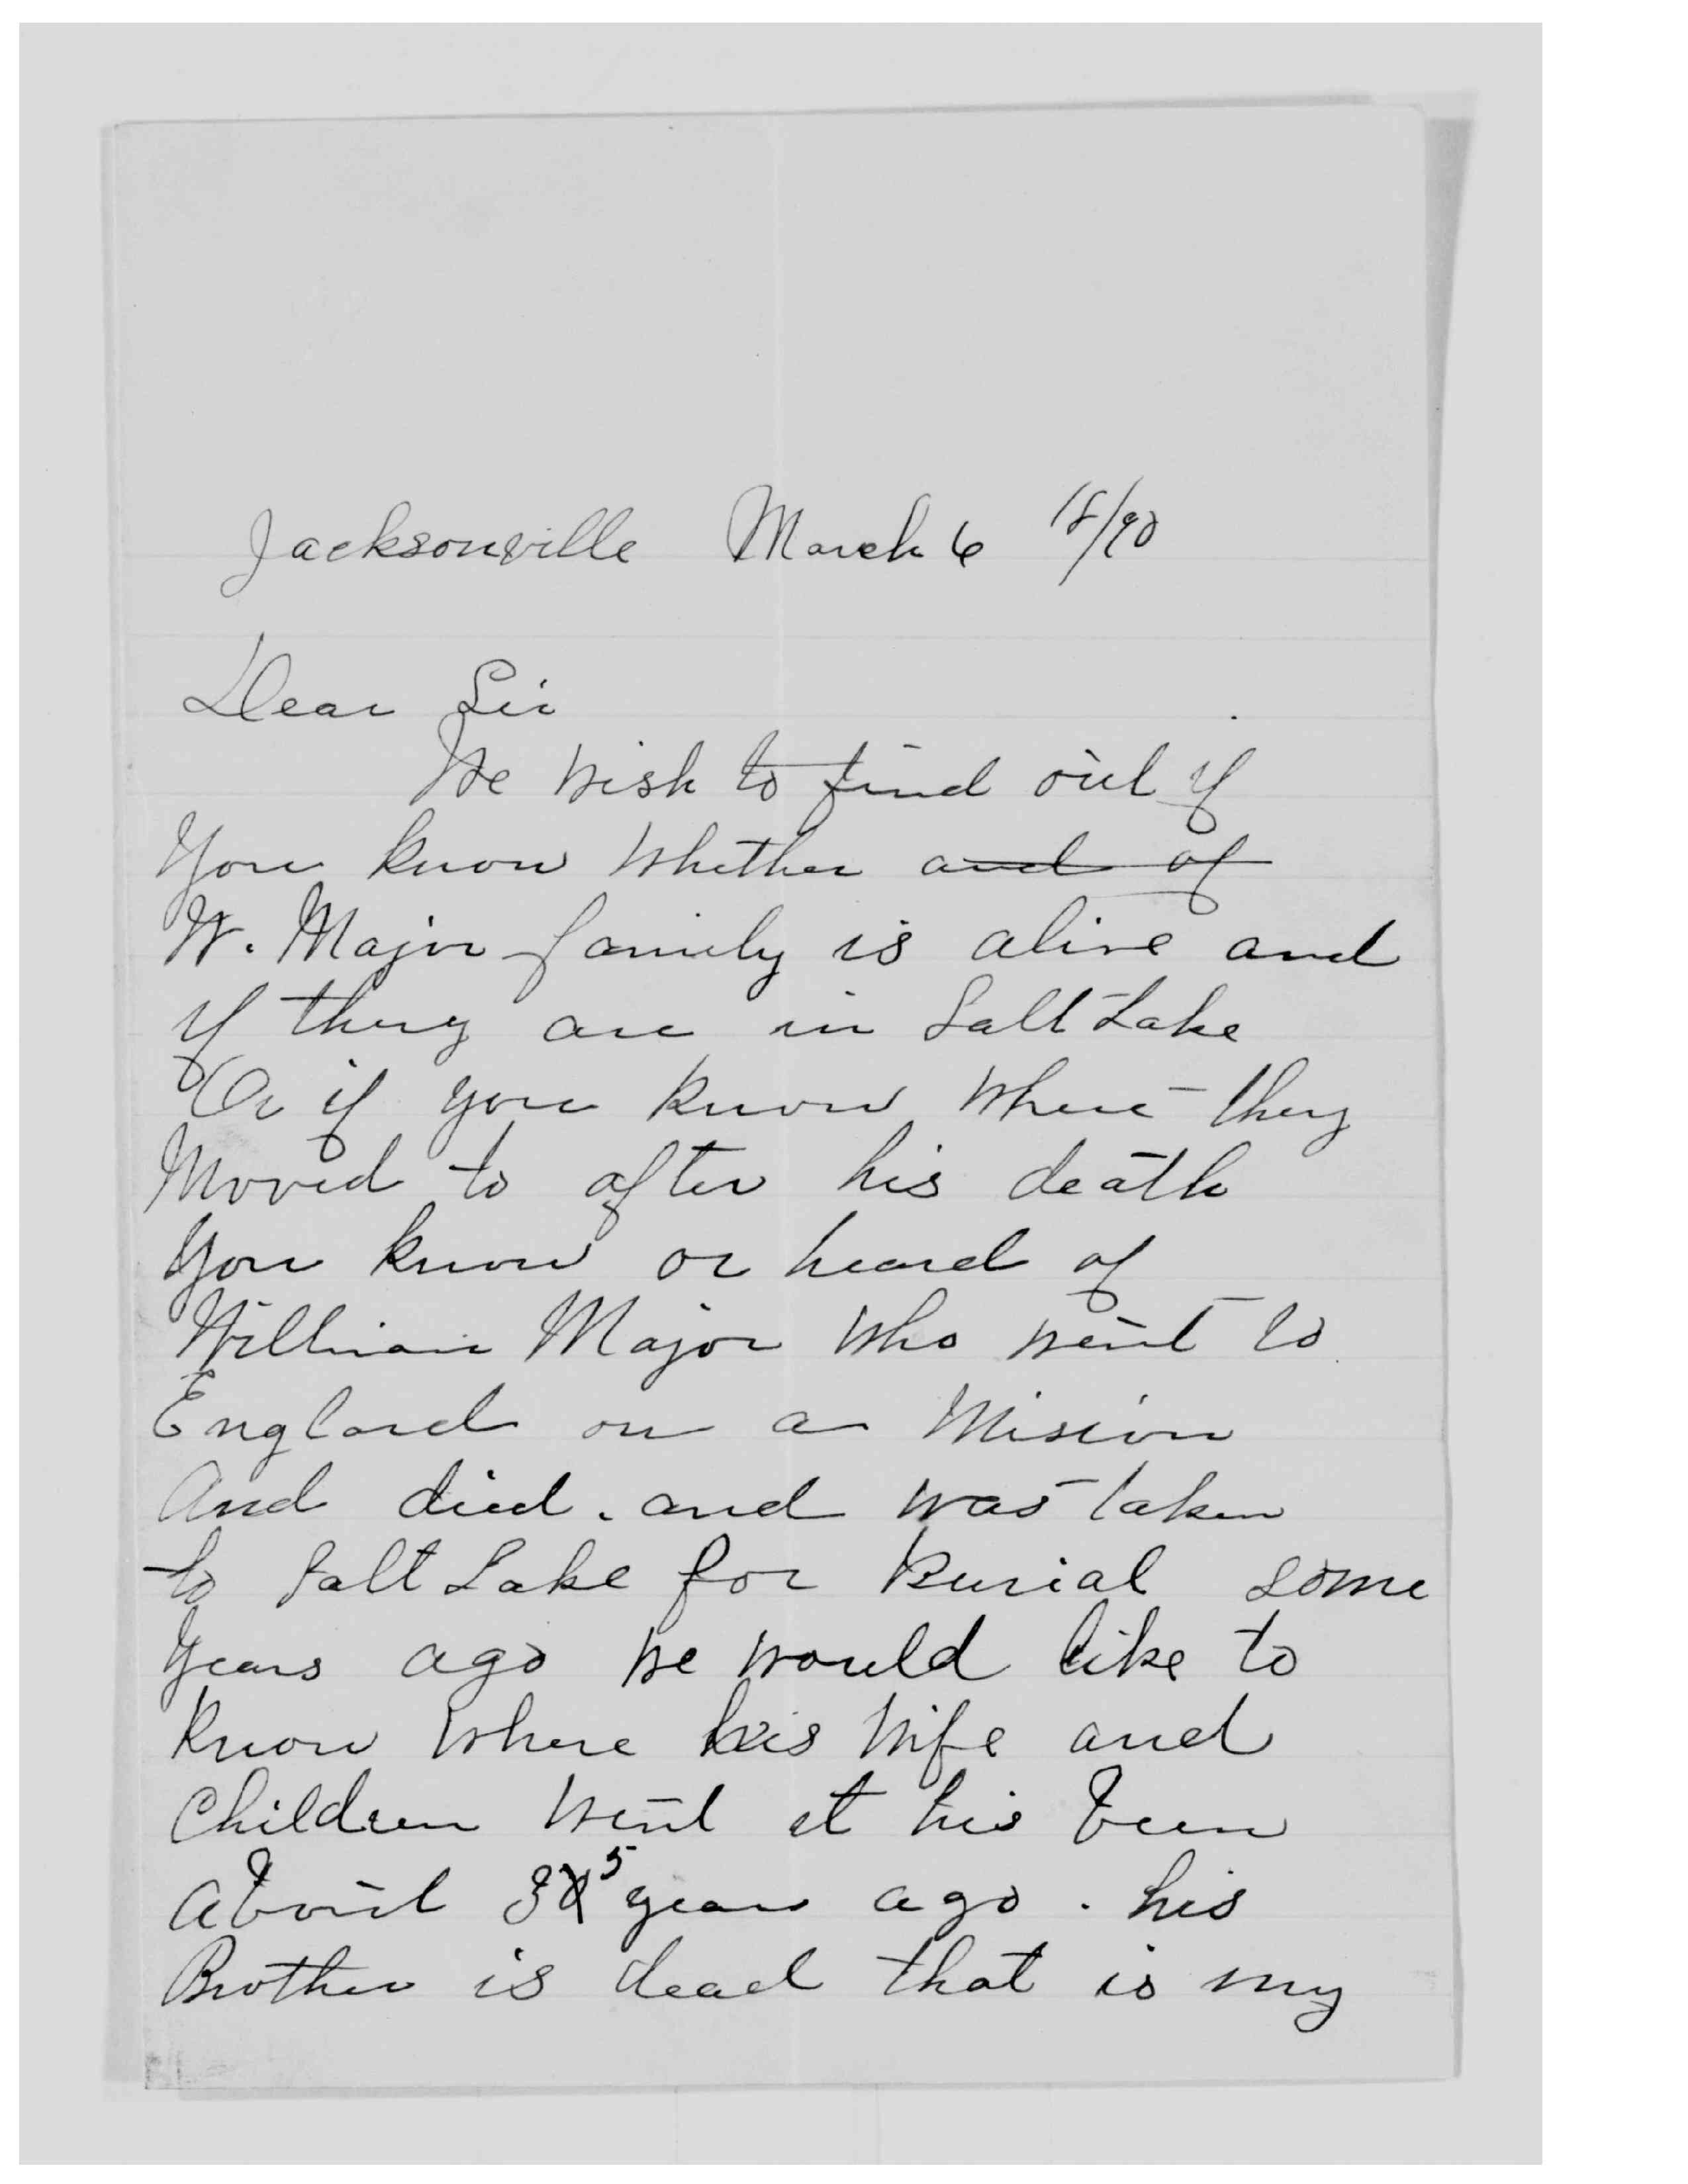 Jacksonville March 6 18/90
Dear Sir
We wish to find out if
You know whether ~~and of~~
W. Major family is alive and
if they are in Salt Lake
Or if you know where they
Moved to after his death
You know or heard of
William Major who went to
England on a Mision
And died. and was taken
to Salt Lake for Burial some
Years ago we would like to
Know where his wife and
Children went it his been
About 35 years ago. his
Brother is dead that is my